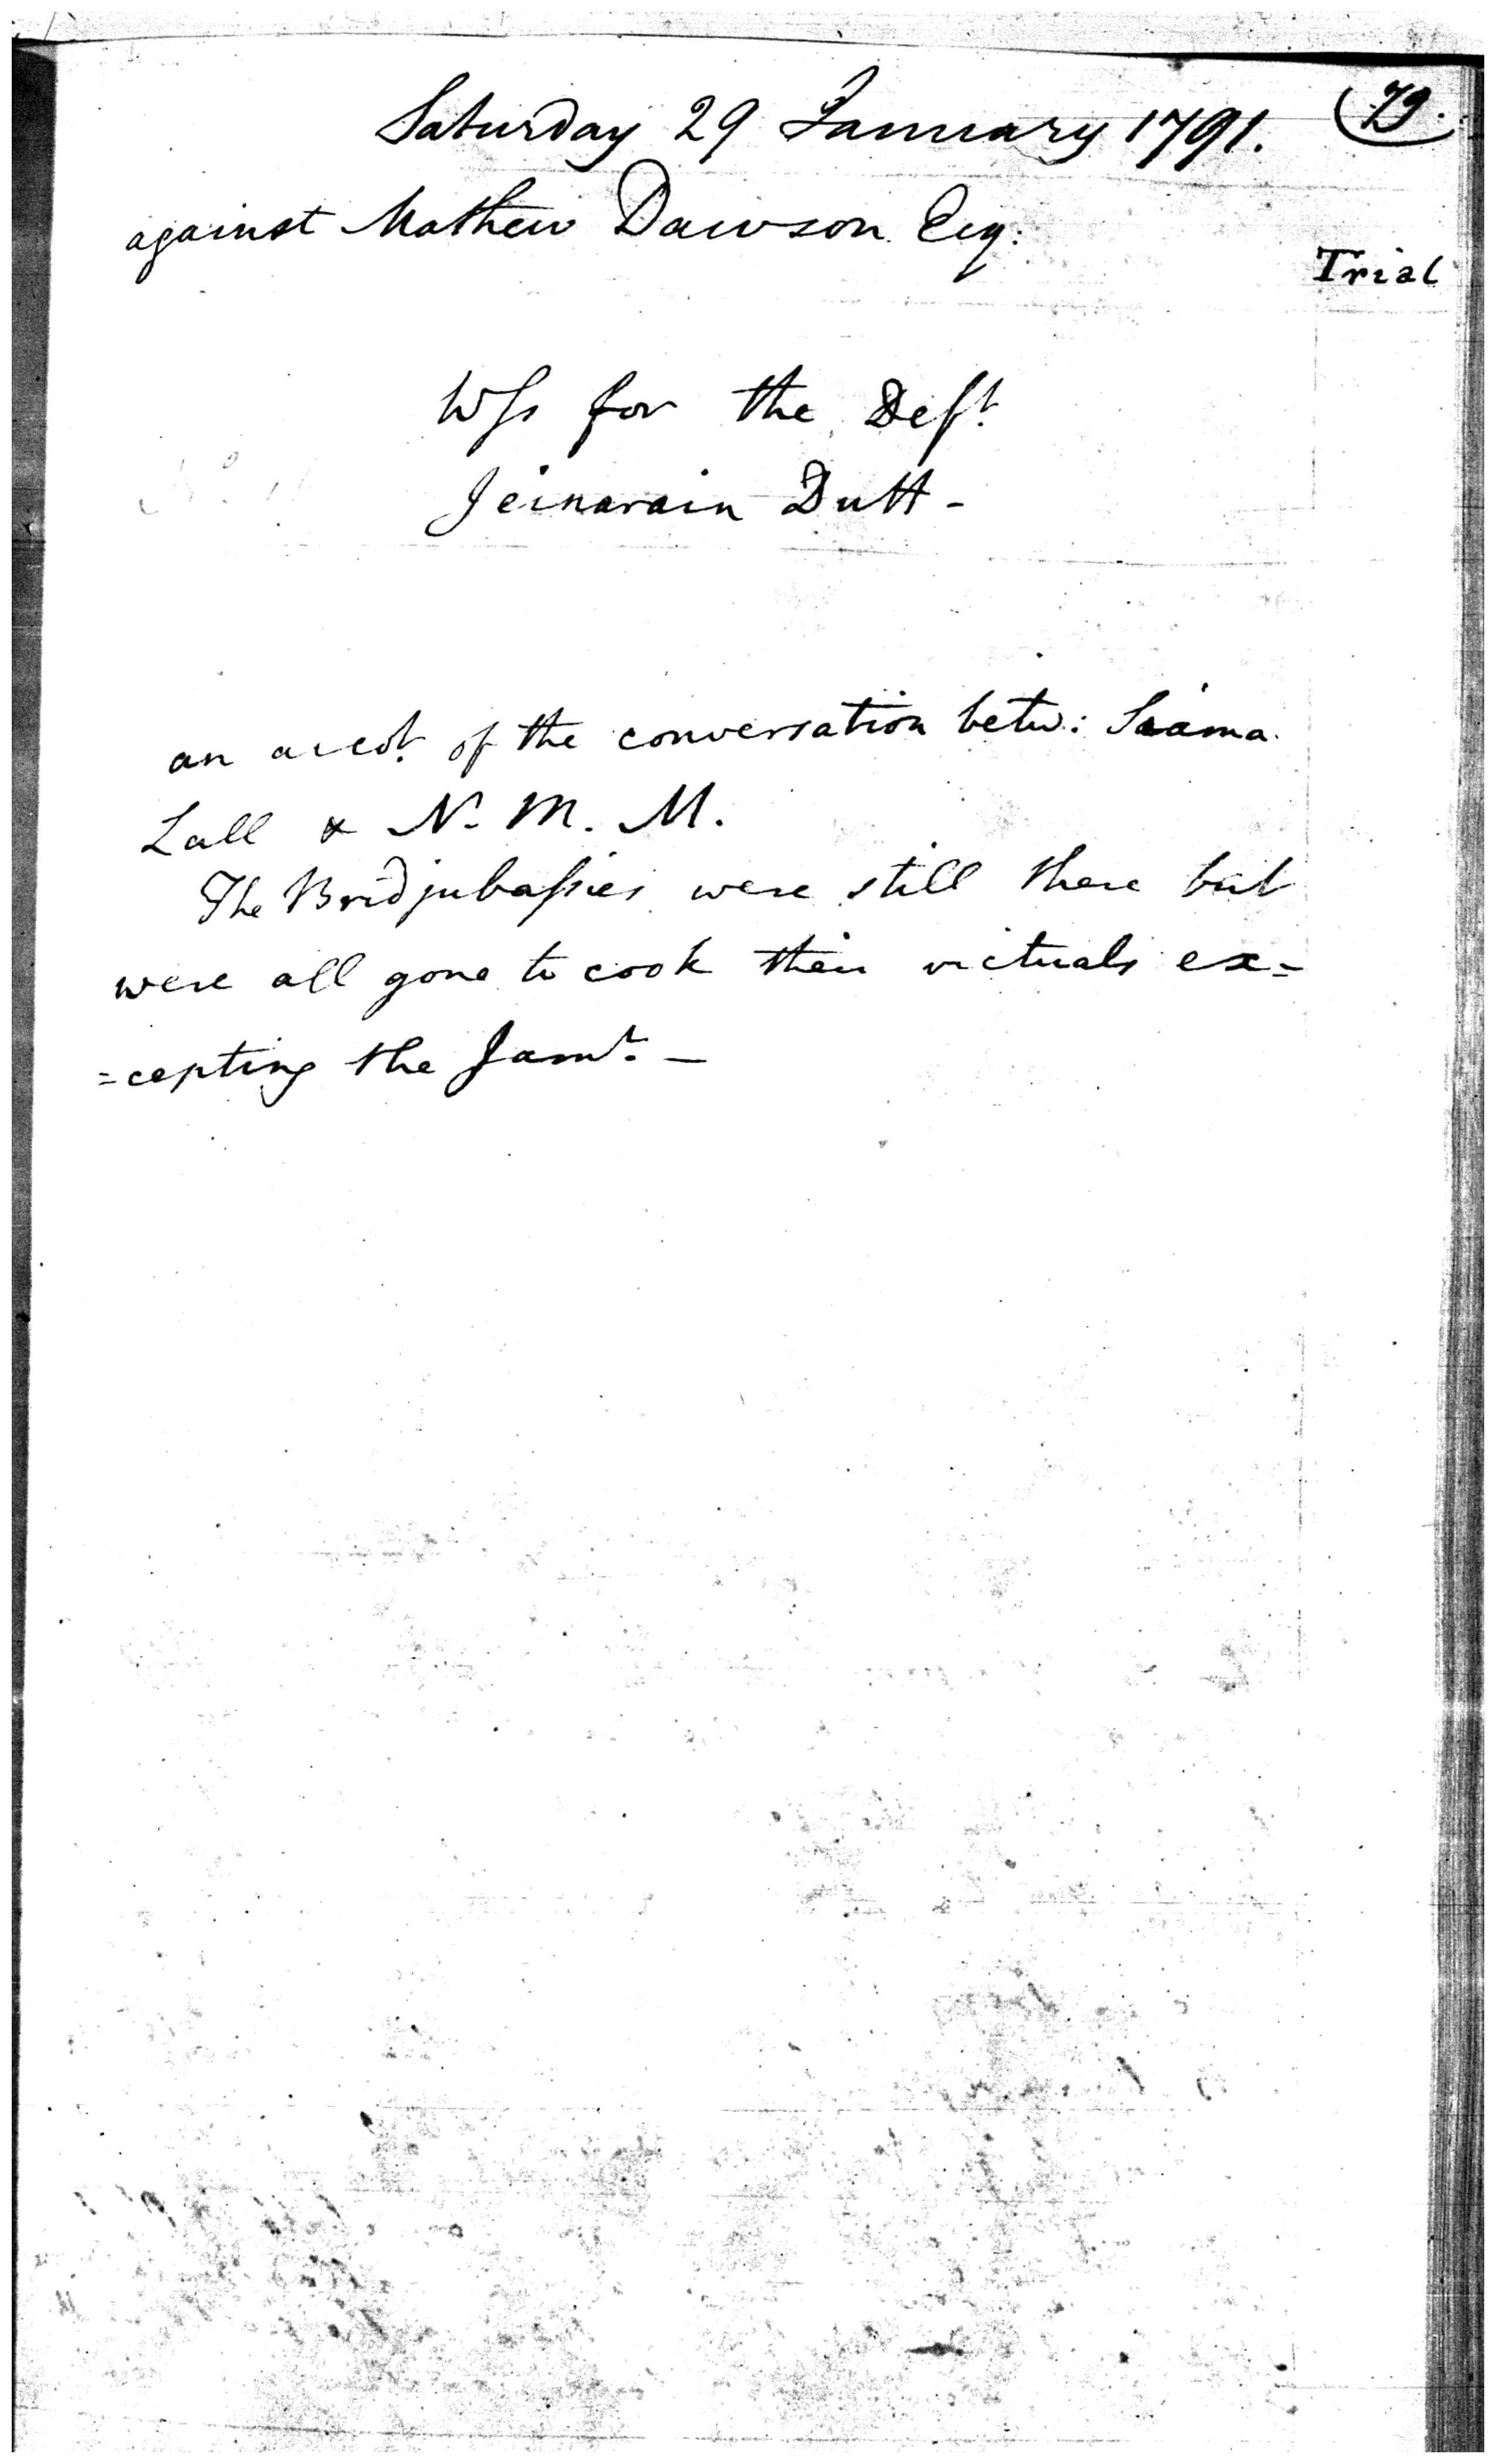 79.
Saturday 29 January 1791.
against Mathew Dawson Esq:
Trial
Wſs for the Deft.
Jeinarain Dutt -
an accot. of the conversation betw: Saama
Lall & N. M. M.
The Bridjubaſsies were still there but
were all gone to cook their victuals ex=
=cepting the Jamr. -